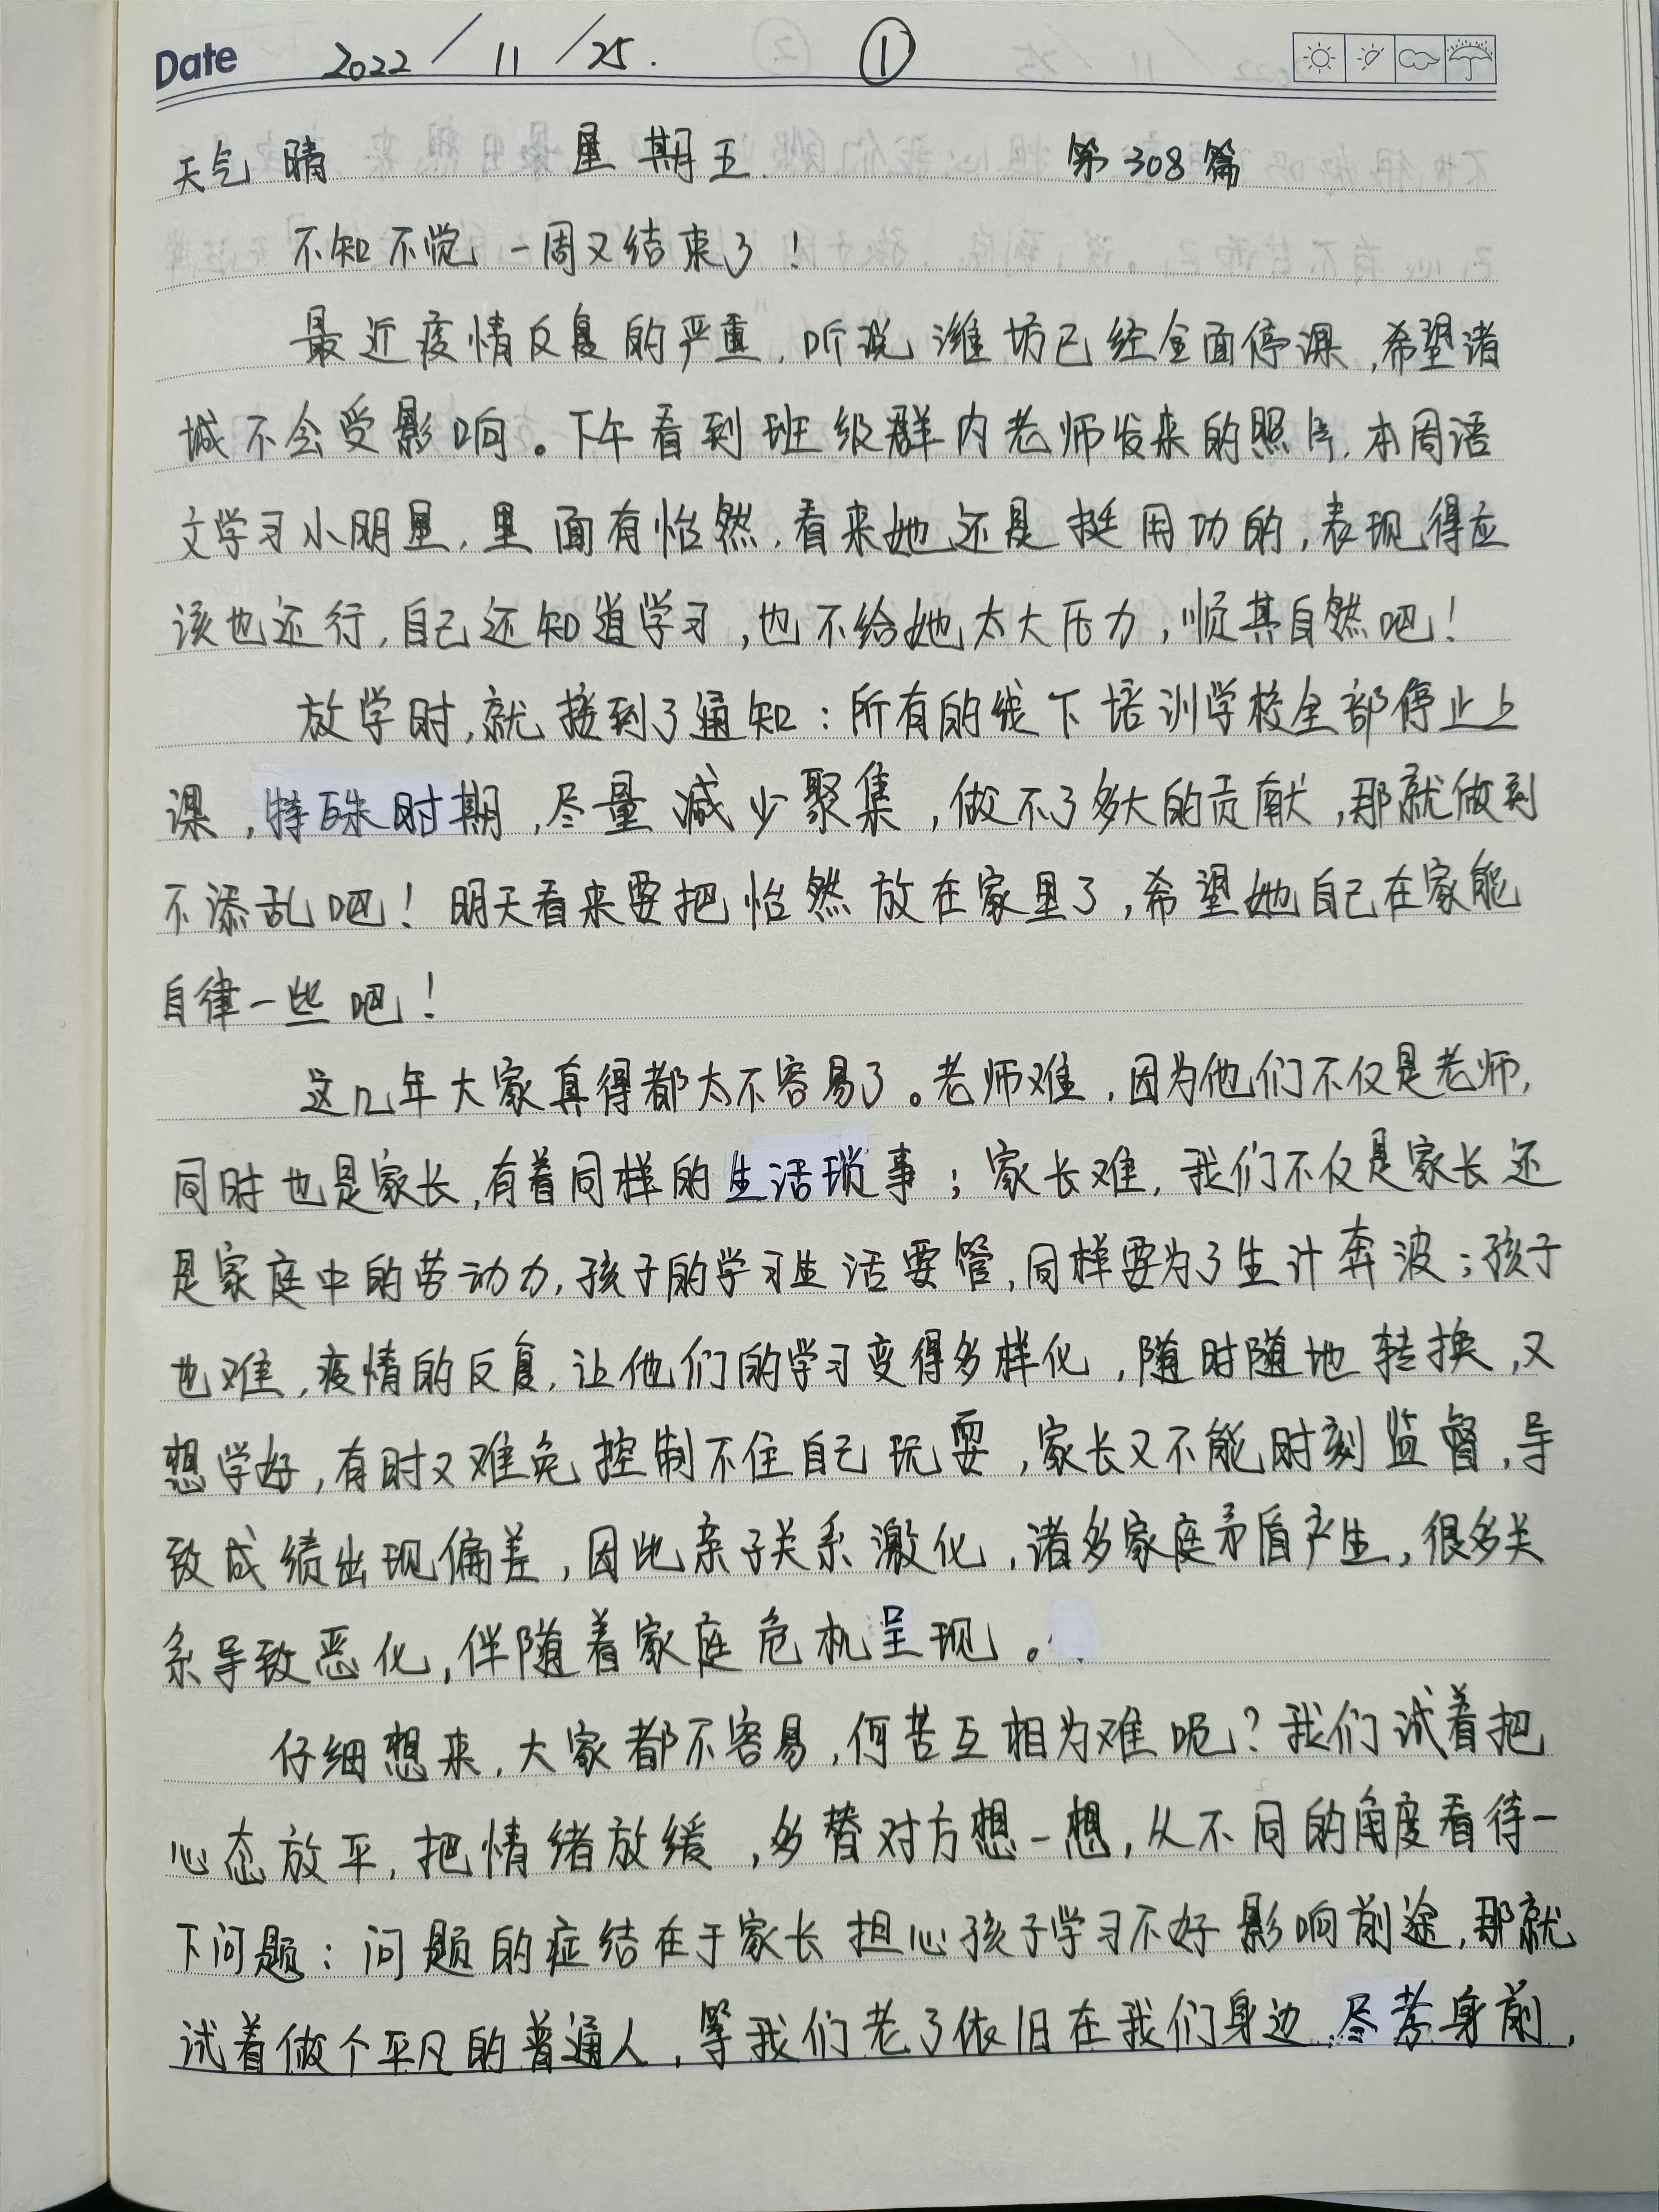 Date 2022/11/25. ①
天气 晴 星期五. 第308篇
不知不觉一周又结束了！
最近疫情反复的严重，听说潍坊已经全面停课，希望诸
城不会受影响。下午看到班级群内老师发来的照片，本周语
文学习小明星，里面有怡然，看来她还是挺用功的，表现得应
该也还行，自己还知道学习，也不给她太大压力，顺其自然吧！
放学时，就接到了通知：所有的线下培训学校全部停止上
课，特殊时期，尽量减少聚集，做不了多大的贡献，那就做到
不添乱吧！明天看来要把怡然放在家里了，希望她自己在家能
自律一些吧！
这几年大家真得都太不容易了。老师难，因为他们不仅是老师，
同时也是家长，有着同样的生活琐事；家长难，我们不仅是家长还
是家庭中的劳动力，孩子的学习生活要管，同样要为了生计奔波；孩子
也难，疫情的反复，让他们的学习变得多样化，随时随地转换，又
想学好，有时又难免控制不住自己玩耍，家长又不能时刻监督，导
致成绩出现偏差，因此亲子关系激化，诸多家庭矛盾产生，很多关
系导致恶化，伴随着家庭危机呈现。
仔细想来，大家都不容易，何苦互相为难呢？我们试着把
心态放平，把情绪放缓，多替对方想一想，从不同的角度看待一
下问题：问题的症结在于家长担心孩子学习不好影响前途，那就
试着做个平凡的普通人，等我们老了依旧在我们身边，尽孝身前，